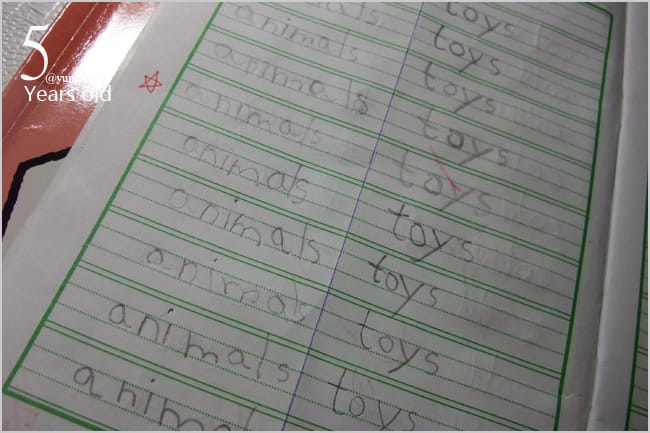 5
Years old
toys
als toys
animals toys
animals toys
animals toys
animals toys
animals toys
animals toys
animals toys
anima